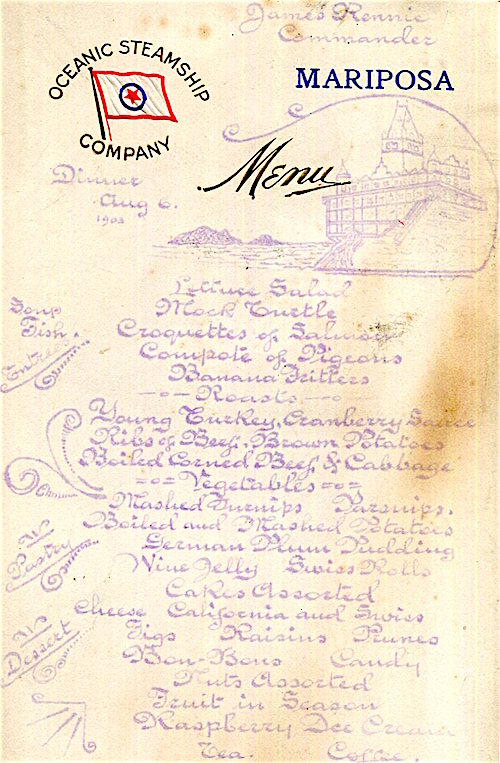 James Rennie
Commander
OCEANIC STEAMSHIP
COMPANY
MARIPOSA
Menu
Dinner
Aug 6.
1903
Lettuce Salad
Soup Mock Turtle
Fish. Croquettes of Salmon
Entrees Compote of Pigeons
Banana Fritters
Roasts
Young Turkey, Cranberry Sauce
Ribs of Beef, Brown Potatoes
Boiled Corned Beef & Cabbage
Vegetables
Mashed Turnips Parsnips.
Boiled and Mashed Potatoes
Pastry German Plum Pudding
Wine Jelly Swiss Rolls
Cakes Assorted
Cheese California and Swiss
Dessert Figs Raisins Prunes
Bon-Bons Candy
Nuts Assorted
Fruit in Season
Raspberry Ice Cream
Tea. Coffee.